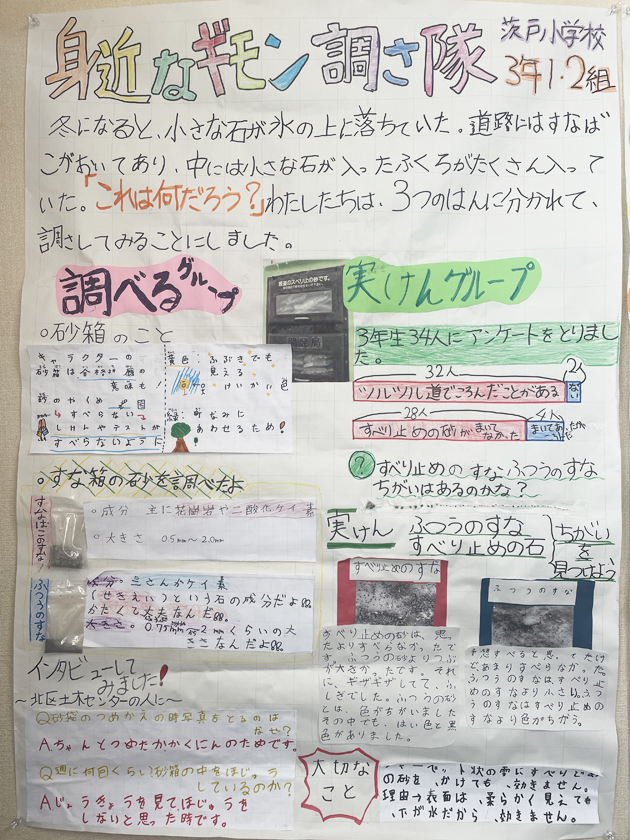 身近なギモン調さ隊
茨戸小学校
3年1・2組
冬になると、小さな石が氷の上に落ちていた。道路にはすなば
こがおいてあり、中には小さな石が入ったふくろがたくさん入って
いた。「これは何だろう?」わたしたちは、3つのはんに分かれて、
調さしてみることにしました。
調べるグループ
○砂箱のこと
キャラクターの
砂箱は各
意味も!
砂のやくめ
すべらない
しけんやテストが
すべらないように
黄色:ふぶきでも
見える
けいかい色
緑:町なみに
あわせるため!
○すな箱の砂を調べたよ
すなばこのすな!
○成分 主に花崗岩や二酸化ケイ素
○大きさ 0.5mm~2.0mm
ふつうのすな
成分。二さんかケイ素
(せきえい)という石の成分だよ。
かたくて丈夫なんだ。
大きさ。0.75mm~2mmくらいの大
きさなんだよ。
インタビューして
みました!
~北区土木センターの人に~
Q砂袋のつめかえの時写真をとるのは
なぜ?
A.ちゃんとつめたかかくにんのためです。
Q週に何回くらい砂箱の中をほじゅう
しているのか?
Aじょうきょうを見て、ほじゅうを
しないと思った時です。
実けんグループ
路面のスベリ止め砂です。
開発局
3年生34人にアンケートをとりまし
た。
32人
2人
ツルツル道でころんだことがある
ない
28人
4人
すべり止めの砂がまいてなかった
まいてあった
?すべり止めの すな ふつうのすな
ちがいはあるのかな?
実けん
ふつうのすな
すべり止めの石
ちがい
を
見つけよう
すべり止めのすな
すべり止めの砂は、思っ
たよりすべらなかったで
す。ふつうの砂よりつぶ
が大きかったです。それ
に、ギザギザしてて、ふ
しぎでした。ふつうの砂
とは、色がちがいました
その中でも、はい色と黒
色がありました。
ふつうのすな
予想すべると思ってたけ
どあまりすべらなかった。
ふつうのすなはすべり止
めのすなより小さい。ふつ
うのすなはすべり止め
のすなより色がちがう。
大切な
こと
の砂を、かけても、効きません。
理由→表面は、柔らかく見えても
、下が氷だから、効きません。